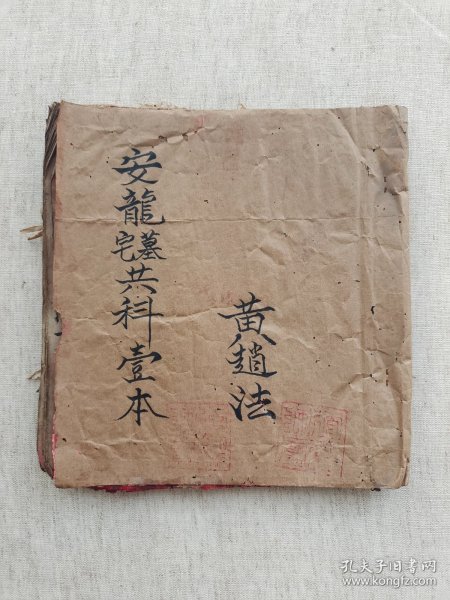 安龍墓宅共科壹本
黄趙法
孔夫子旧书网
www.kongfz.com